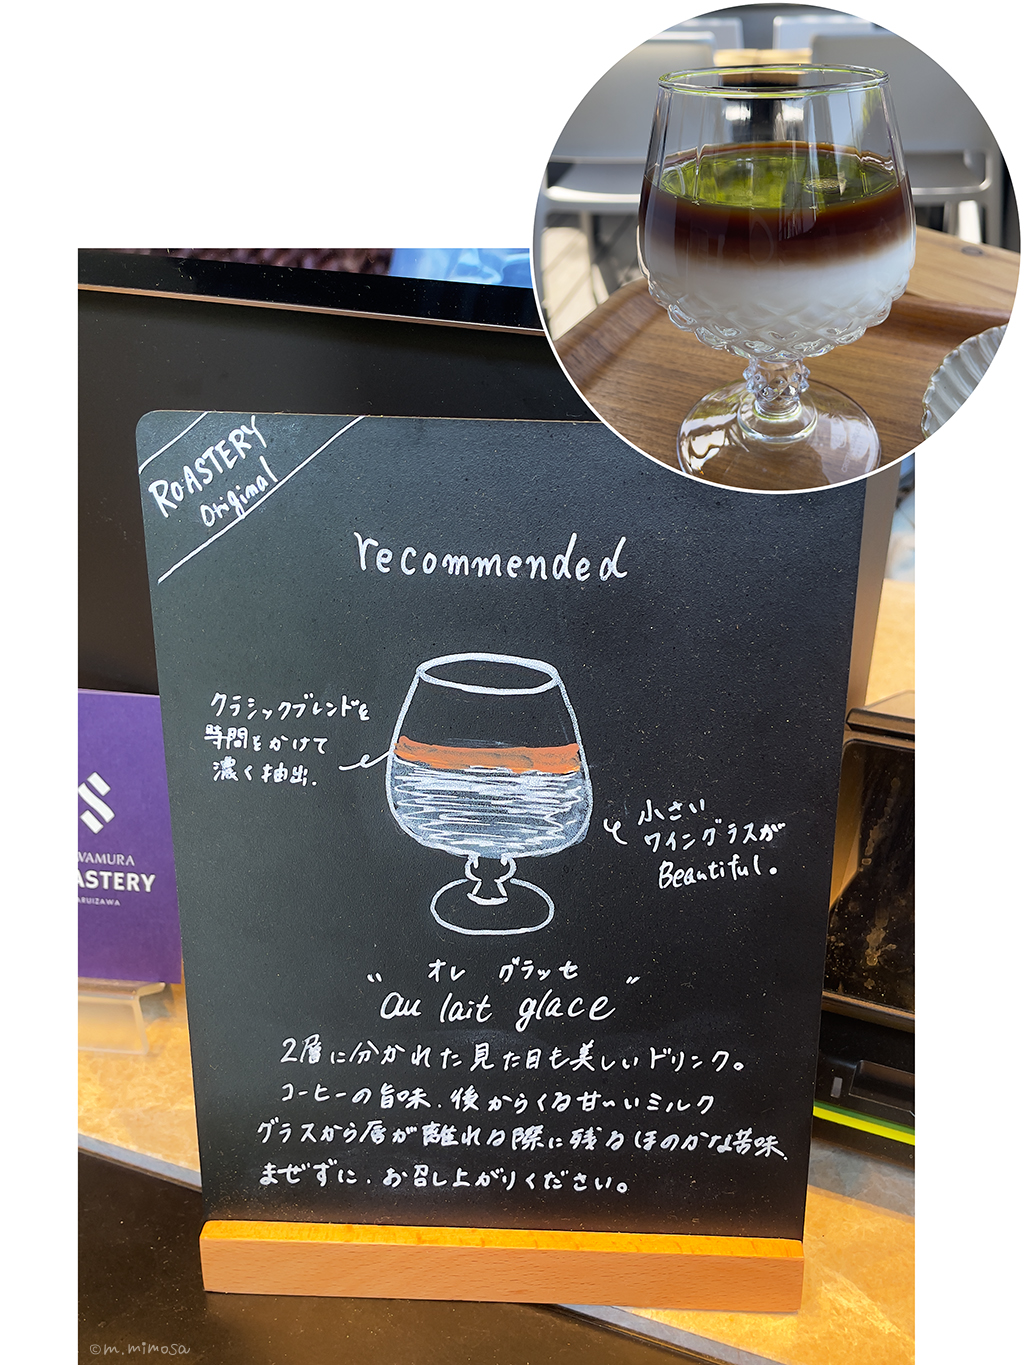 ROASTERY
original
recommended
クラシックブレンドを
時間をかけて
濃く抽出.
小さい
ワイングラスが
Beautiful。
オレ グラッセ
"au lait glace"
2層に分かれた見た目も美しいドリンク。
コーヒーの旨味、後からくる甘〜いミルク
グラスから唇が離れる際に残るほのかな苦味、
まぜずに、お召し上がりください。
VAMURA
ASTERY
ARUIZAWA
©m.mimosa